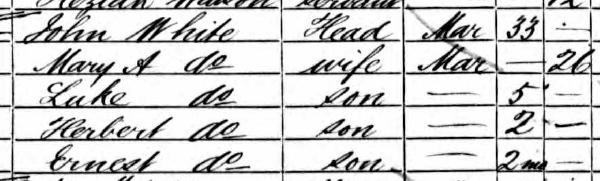 Servant 12
John White Head Mar 33 —
Mary A do wife Mar — 26
Luke do son — 5 —
Herbert do son — 2 —
Ernest do son — 2 mo —